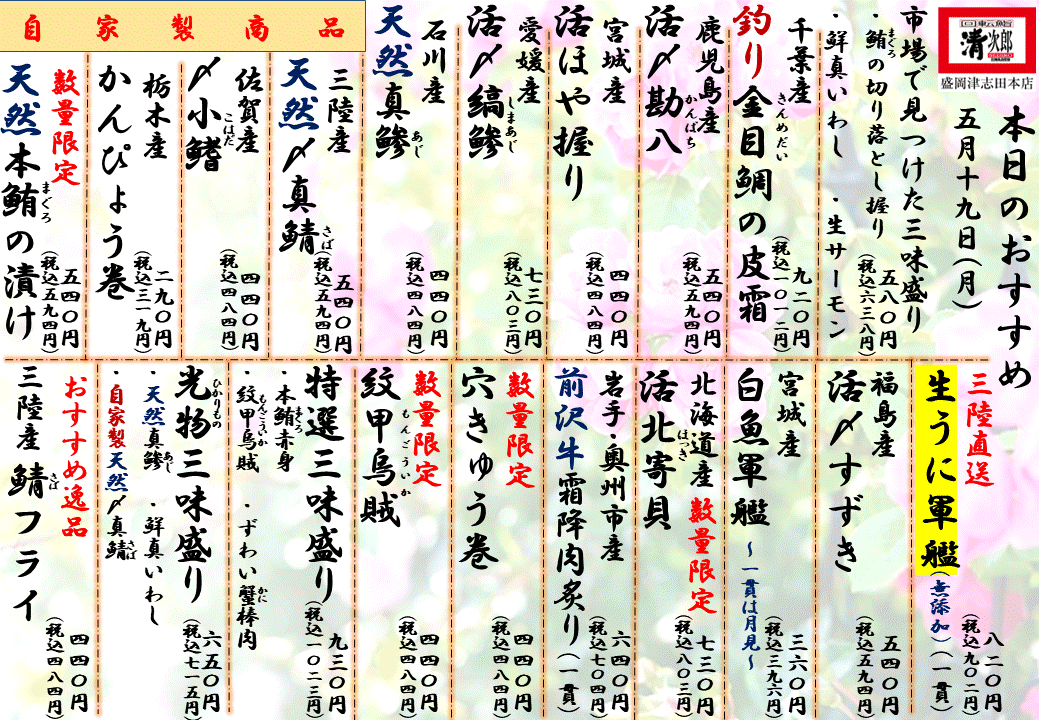 回転鮨
清次郎
盛岡津志田本店
本日のおすすめ
五月十九日(月)
市場で見つけた三味盛り
・鮪の切り落とし握り
まぐろ
・鮮真いわし ・生サーモン
五八〇円
(税込六三八円)
千葉産
釣り金目鯛の皮霜
きんめだい
九二〇円
(税込一〇一二円)
鹿児島産
活〆勘八
かんぱち
五四〇円
(税込五九四円)
宮城産
活ほや握り
四四〇円
(税込四八四円)
愛媛産
活〆縞鯵
しまあじ
七三〇円
(税込八〇三円)
石川産
天然真鯵
あじ
四四〇円
(税込四八四円)
自家製商品
三陸産
天然〆真鯖
さば
五四〇円
(税込五九四円)
佐賀産
〆小鰭
こはだ
四四〇円
(税込四八四円)
栃木産
かんぴょう巻
二九〇円
(税込三一九円)
数量限定
天然本鮪の漬け
まぐろ
五四〇円
(税込五九四円)
三陸直送
生うに軍艦(無添加)(一貫)
八二〇円
(税込九〇二円)
福島産
活〆すずき
五四〇円
(税込五九四円)
宮城産
白魚軍艦 ～一貫は月見～
三六〇円
(税込三九六円)
北海道産 数量限定
活北寄貝
ほっき
七三〇円
(税込八〇三円)
岩手・奥州市産
前沢牛霜降肉炙り(一貫)
六四〇円
(税込七〇四円)
数量限定
穴きゅう巻
四四〇円
(税込四八四円)
数量限定
紋甲烏賊
もんごういか
四四〇円
(税込四八四円)
特選三味盛り
・本鮪赤身 ・ずわい蟹棒肉
まぐろ
かに
・紋甲烏賊
もんごういか
九三〇円
(税込一〇二三円)
光物三味盛り
ひかりもの
・天然真鯵 ・鮮真いわし
あじ
・自家製天然〆真鯖
さば
六五〇円
(税込七一五円)
おすすめ逸品
三陸産 鯖フライ
さば
四四〇円
(税込四八四円)